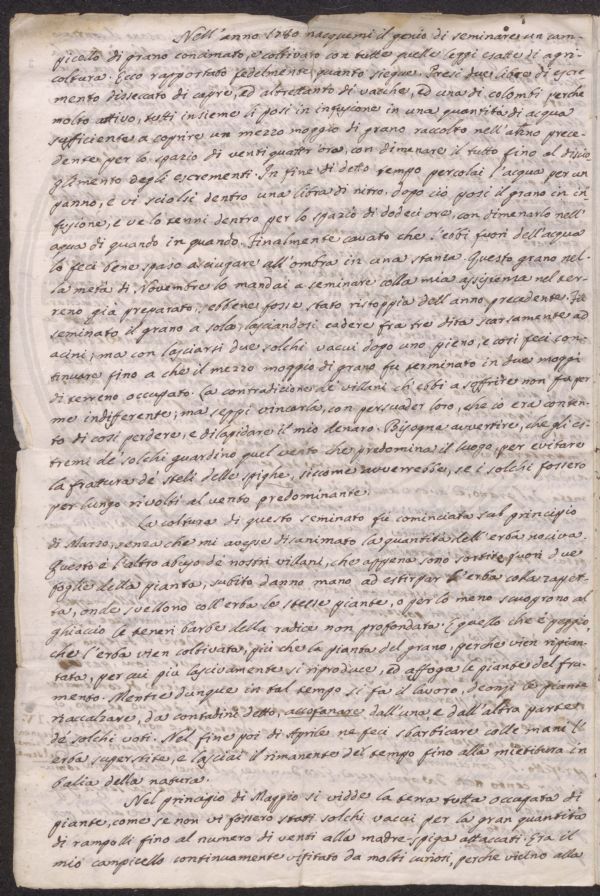 Nell'anno 1780 nacquemi il genio di seminare un cam-
picello di grano concimato, e coltivato con tutte quelle leggi esatte di agri-
coltura. Ecco rapportato fedelmente quanto siegue. Presi due libre di escre-
mento disseccato di capre, ed altrettanto di vacche, ed una di colombi perche
molto attivo, tutti insieme li posi in infusione in una quantità di acqua
sufficiente a coprire un mezzo moggio di grano raccolto nell'anno prece-
dente per lo spazio di ventiquattr'ore, con dimenare il tutto fino al discio-
glimento degli escrementi. In fine di detto tempo percolai l'acqua per un
panno, e vi sciolsi dentro una libra di nitro. dopo ciò posi il grano in in-
fusione, e ve lo tenni dentro per lo spazio di dodeci ore, con dimenarlo nell'
aqua di quando in quando. Finalmente cavato che l'ebbi fuori dell'acqua
lo feci bene spaso asciugare all'ombra in una stanza. Questo grano nel-
la metà di Novembre lo mandai a seminare colla mia assistenza nel ter-
reno già preparato, sebbene fosse stato ristoppia dell'anno precedente. Fu
seminato il grano a solco, lasciandosi cadere fra tre dita scarsamente ad
acini; ma con lasciarsi due solchi vacui dopo uno pieno, e così feci con-
tinuare fino a che il mezzo moggio di grano fu terminato in due moggi
di terreno occupato. La contradizione de' villani ch'ebbi a soffrire non fu per
me indifferente; ma seppi vincerla, con persuader loro, che io era conten-
to di così perdere, e dilapidare il mio denaro. Bisogna avvertire, che gli es-
tremi de' solchi guardino quel vento che predomina il luogo, per evitare
la frattura de' steli delle spighe, siccome avverrebbe, se i solchi fossero
per lungo rivolti al vento predominante.
La coltura di questo seminato fu cominciata sul principio
di Marzo, senza che mi avesse disanimato la quantità dell'erba nociva.
Questo è l'altro abuso de' nostri villani, che appena sono sortite fuori due
foglie della pianta, subito danno mano ad estirpar l'erba colà
onde svellono coll'erba le stesse piante, o per lo meno scuoprono al
ghiaccio le teneri barbe della radice non profondata. E quello che è peggio,
che l'erba vien coltivata, più che la pianta del grano, perche vien ripian-
tata, per cui più lascivamente si riproduce, ed affoga le piante del fru-
mento. Mentre dunque in tal tempo si fa il lavoro, deonsi le piante
riaccalzare, da' contadini detto, accofanare dall'una, e dall'altra parte
de' solchi voti. Nel fine poi di Aprile ne feci sbarbicare colle mani l'
erba superstite, e lasciai il rimanente del tempo fino alla mietitura in
balia della natura.
Nel principio di Maggio si vidde la terra tutta occupata di
piante, come se non vi fossero stati solchi vacui per la gran quantità
di rampolli fino al numero di venti alla madre-spiga attaccati. Era il
mio campicello continuamente visitato da molti curiosi, perche vicino alla